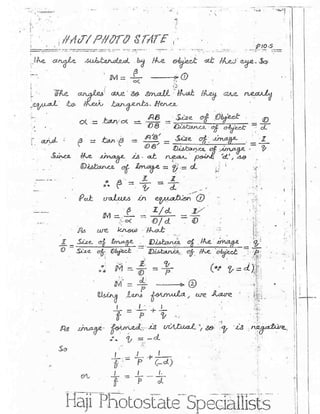 HAJI PHOTO STATE
P10-5
the angle subtended by the object at the eye. So
M = β/α → ①
The angles are so small that they are nearly
equal to their tangents. Hence
α = tan α = AB/OB = Size of Object/Distance of object = O/d
and β = tan β = A'B'/OB' = Size of image/Distance of image = I/q
Since the image is at near point 'd', so
Distance of Image = q = d
∴ β = I/q = I/d
Put values in equation ①
M = β/α = I/d / O/d = I/O
As we know that
I/O = Size of Image/Size of Object = Distance of the image/Distance of the object = q/p
∴ M = I/O = q/p (∵ q = d)
M = d/p → ②
Using lens formula, we have
1/f = 1/p + 1/q
As image formed is virtual, so q is negative
∴ q = -d
So
1/f = 1/p + 1/(-d)
or 1/f = 1/p - 1/d
Haji Photostate Speciallists